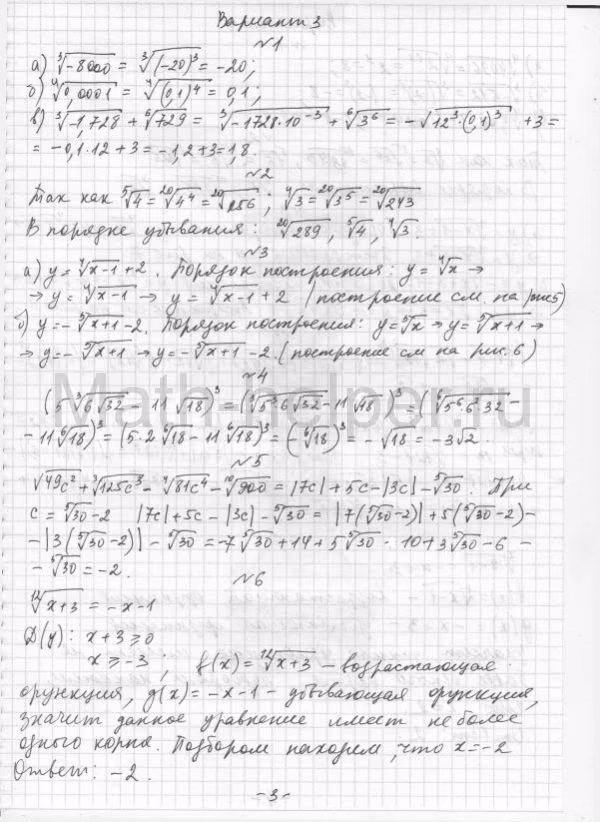 Вариант 3
№1
а) ∛-8000 = ∛(-20)³ = -20;
б) ⁴√0,0001 = ⁴√(0,1)⁴ = 0,1;
в) ∛-1,728 + ⁶√729 = ∛-1728·10⁻³ + ⁶√3⁶ = -√12³·(0,1)³ + 3 =
= -0,1·12 + 3 = -1,2+3=1,8.
№2
Так как ⁵√4 = ²⁰√4⁴ = ²⁰√256; ⁴√3 = ²⁰√3⁵ = ²⁰√243
В порядке убывания: ²⁰√289, ⁵√4, ⁴√3.
№3
а) y = ⁴√x-1 + 2. Порядок построения: y = ⁴√x →
→ y = ⁴√x-1 → y = ⁴√x-1 + 2 (построение см. на рис 5)
б) y = -⁵√x+1 - 2. Порядок построения: y = ⁵√x → y = ⁵√x+1 →
→ y = -⁵√x+1 → y = -⁵√x+1 - 2. (построение см на рис. 6)
№4
(5∛6√32 - 11√√18)³ = (∛√5³6√32 - 11√18)³ = (⁶√5⁶6²32 -
- 11⁶√18)³ = (5·2⁶√18 - 11⁶√18)³ = (-⁶√18)³ = -√18 = -3√2.
№5
√49c² + ∛125c³ - ⁴√81c⁴ - ¹⁰√900 = |7c| + 5c - |3c| - ⁵√30. При
c = ⁵√30 - 2 |7c| + 5c - |3c| - ⁵√30 = |7(⁵√30-2)| + 5(⁵√30-2) -
- |3(⁵√30-2)| - ⁵√30 = -7⁵√30 + 14 + 5⁵√30 - 10 + 3⁵√30 - 6 -
- ⁵√30 = -2.
№6
¹²√x+3 = -x-1
D(y): x+3 ≥ 0
x ≥ -3; f(x) = ¹²√x+3 - возрастающая
функция, g(x) = -x-1 - убывающая функция,
значит данное уравнение имеет не более
одного корня. Подбором находим, что x = -2
Ответ: -2.
-3-
Math-helper.ru